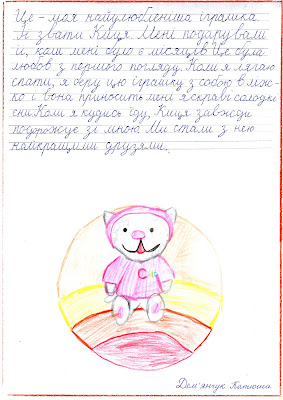 Це – моя найулюбленіша іграшка.
Її звати Киця. Мені подарували
її, коли мені було 6 місяців. Це була
любов з першого погляду. Коли я лягаю
спати, я беру цю іграшку з собою в ліж-
ко і вона приносить мені яскраві солодкі
сни. Коли я кудись їду, Киця завжди
подорожує зі мною. Ми стали з нею
найкращими друзями.
С
Дем'янчук Катюша